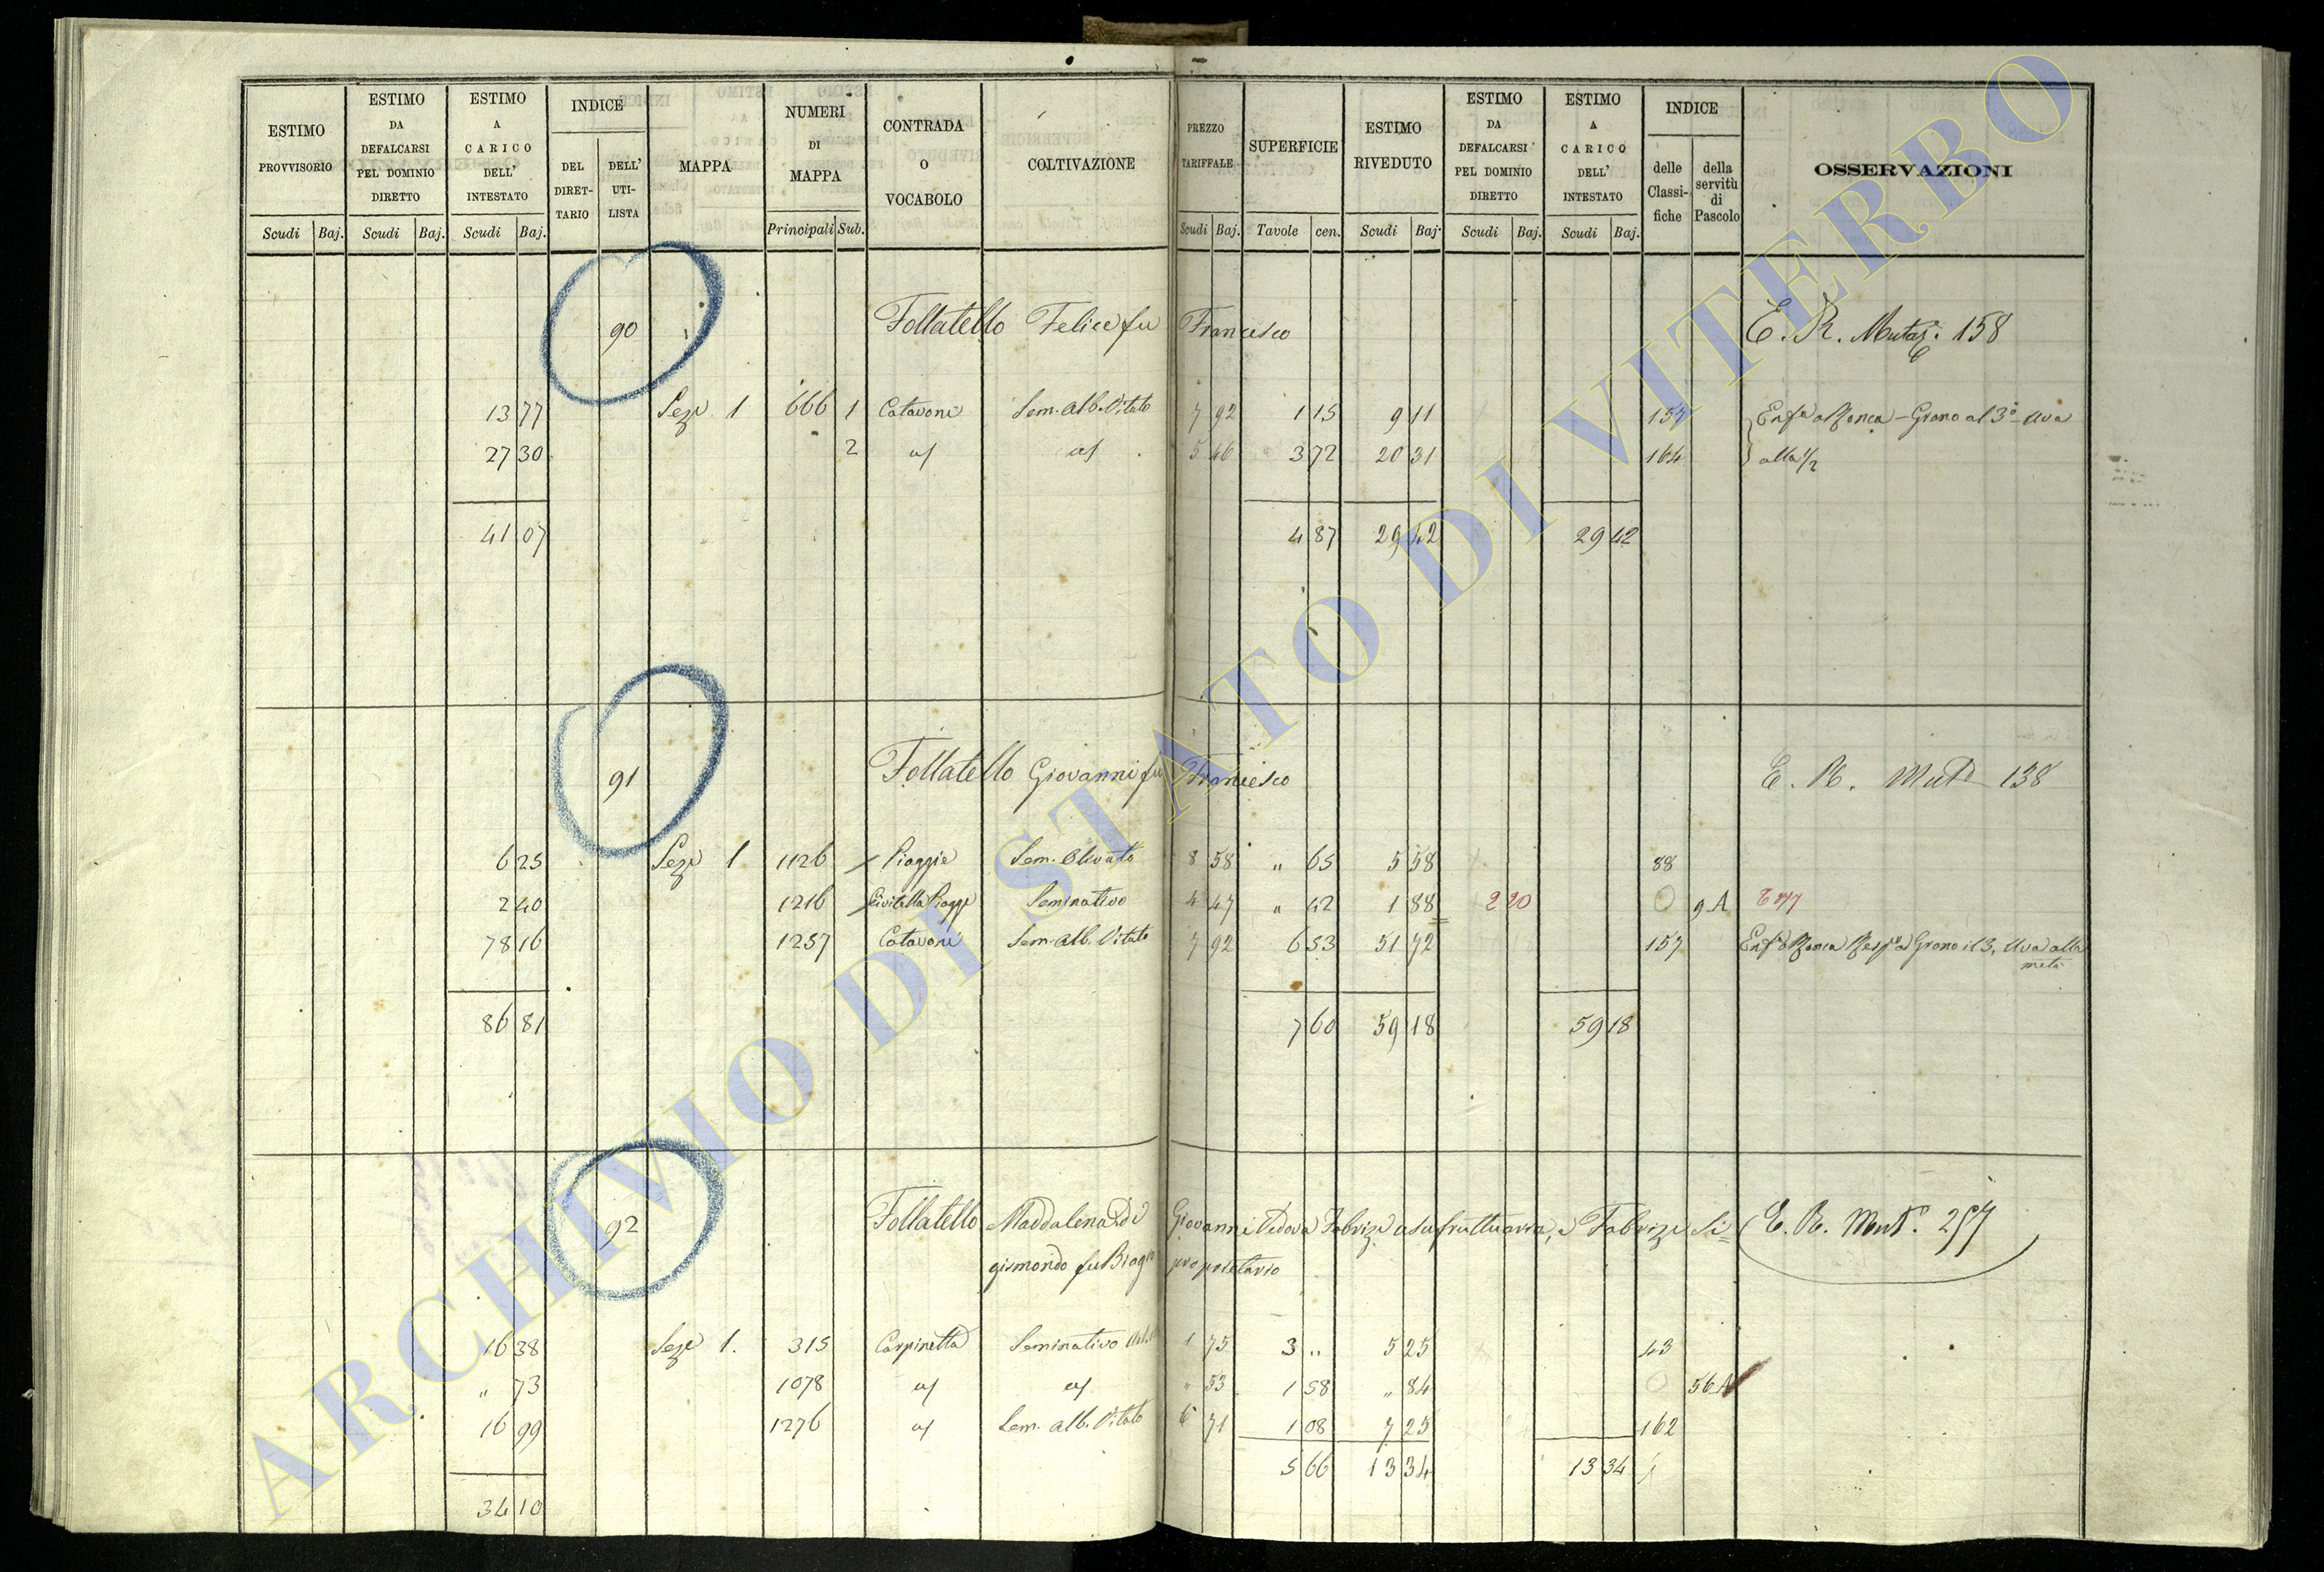 ESTIMO PROVVISORIO | ESTIMO DA DEFALCARSI PEL DOMINIO DIRETTO | ESTIMO A CARICO DELL' INTESTATO | INDICE | MAPPA | NUMERI DI MAPPA | CONTRADA O VOCABOLO | COLTIVAZIONE | PREZZO TARIFFALE | SUPERFICIE | ESTIMO RIVEDUTO | ESTIMO DA DEFALCARSI PEL DOMINIO DIRETTO | ESTIMO A CARICO DELL' INTESTATO | INDICE | OSSERVAZIONI
DEL DIRET-TARIO | DELL' UTI-LISTA | delle Classi-fiche | della servitù di Pascolo
Scudi Baj. | Scudi Baj. | Scudi Baj. | Principali Sub. | Scudi Baj. | Tavole cen. | Scudi Baj. | Scudi Baj. | Scudi Baj.
90 Follatello Felice fu Francesco E. R. Mutaz. 158
13 77 Sez. 1 666 1 Catavoni Sem. Alb. Vitato 7 92 1 15 9 11 157 Enfa a Ronca - Grano al 3° - Uva
27 30 2 5 46 3 72 20 31 164 alla 1/2
41 07 4 87 29 42 29 42
91 Follatello Giovanni fu Francesco E. R. Mut. 138
6 25 Sez. 1 1126 Piaggie Sem. Olivato 8 58 " 65 5 58 88
2 40 1216 Civitella Piagge Seminativo 4 47 " 42 1 88 2 20 9 A
78 16 1257 Catavoni Sem. Alb. Vitato 7 92 6 53 51 72 157 Ronca Grano il 3, Uva alla
metà
86 81 7 60 59 18 59 18
92 Follatello Maddalena di Giovanni Vedova Fabrizi usufruttuaria, e Fabrizi Si= E. R. Mut. 257
gismondo fu Biagio proprietario
16 38 Sez. 1. 315 Carpinetta Seminativo 1 75 3 " 5 25 43
" 73 1078 " 53 1 58 " 84 56 A
16 99 1276 Sem. Alb. Vitato 6 71 1 08 7 25 162
5 66 13 34 13 34
34 10
ARCHIVIO DI STATO DI VITERBO